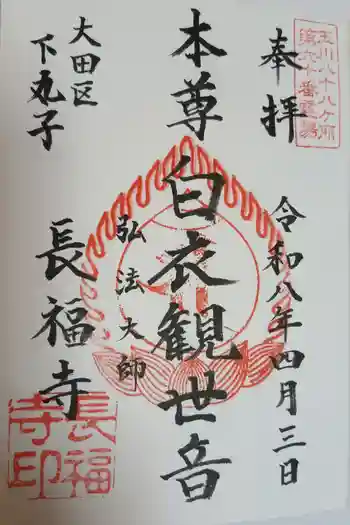 玉川八十八ヶ所
第六十番霊場
奉拝
令和八年四月三日
本尊 白衣観世音
弘法大師
大田区
下丸子
長福寺
長福
寺印